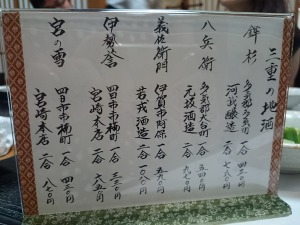 三重の地酒
鉾杉
多気郡多気町 一合 四三〇
河武醸造 二合 七八〇
八兵衛
多気郡大台町 一合 五四〇
元坂酒造 二合 九七〇
義左衛門
伊賀市阿保 一合 五九〇
若戎酒造 二合 一〇八〇
伊勢舎
四日市市楠町 一合 三三〇
宮崎本店 二合 六五〇
宮の雪
四日市市楠町 一合 四三〇
宮崎本店 二合 八七〇